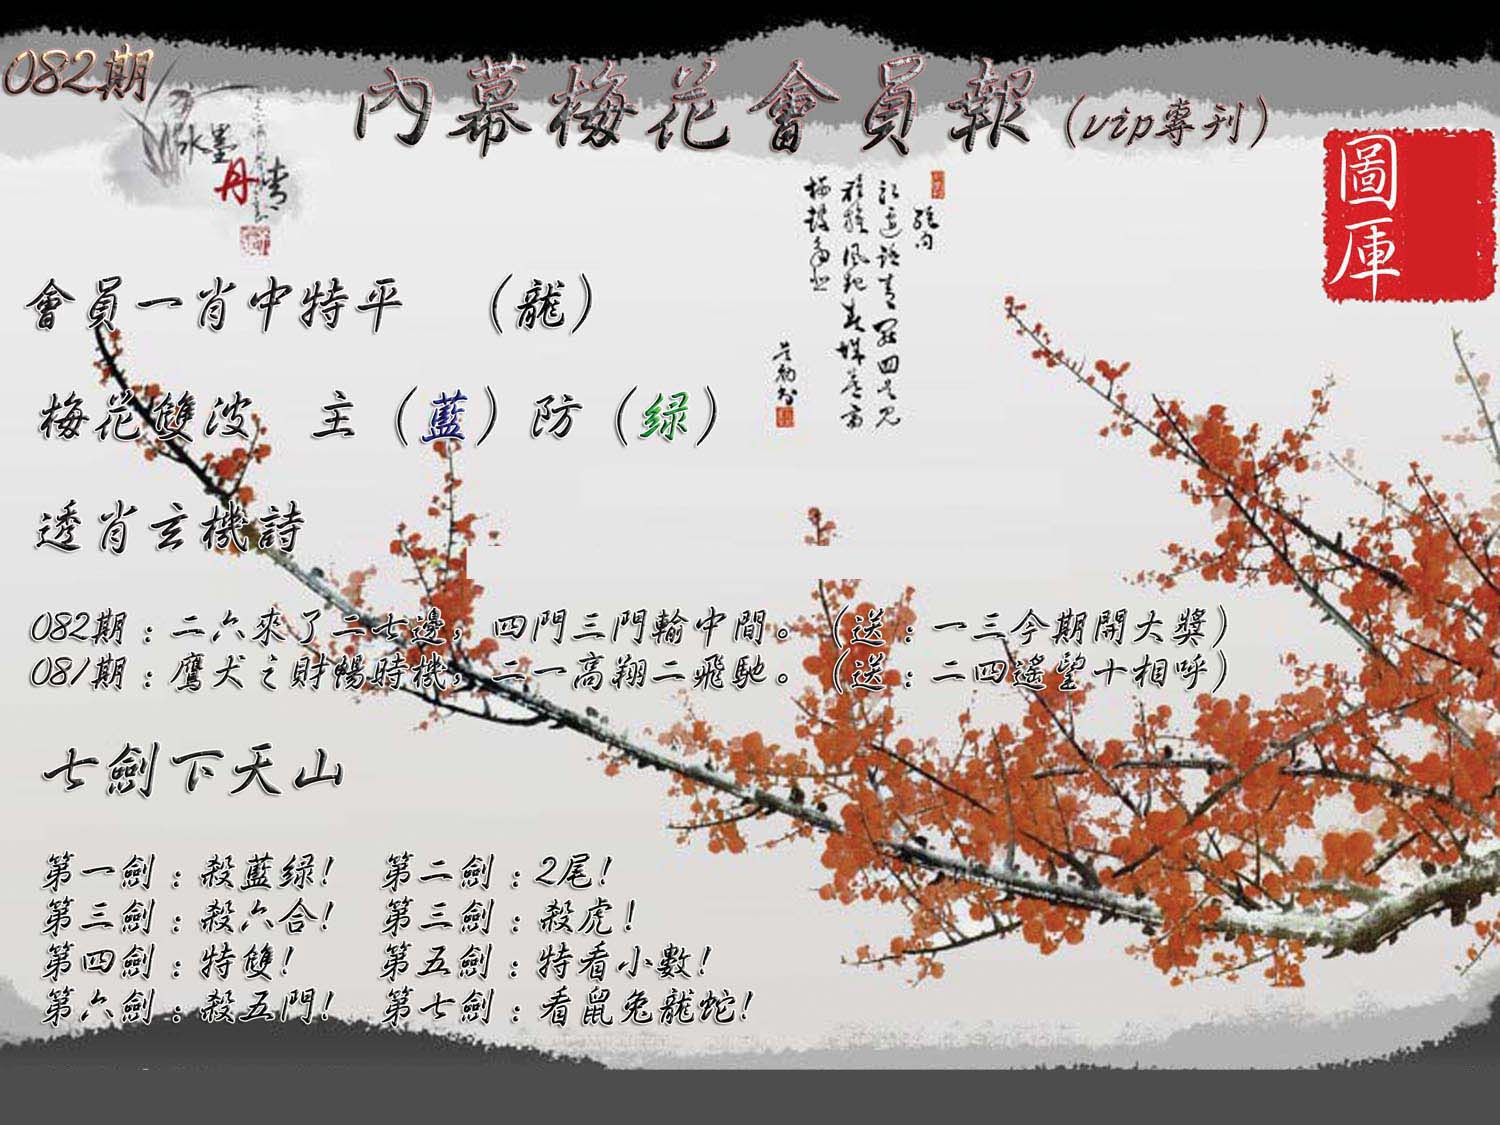 082期
內幕梅花會員報(vip專刊)
水墨
丹青
圖
庫
會員一肖中特平 (龍)
梅花雙波 主(藍)防(绿)
透肖玄機詩
082期：二六來了二七邊，四門三門輸中間。(送：一三今期開大獎)
081期：鷹犬之財暢時機，二一高翔二飛馳。(送：二四遙望十相呼)
七劍下天山
第一劍：殺藍绿! 第二劍：2尾!
第三劍：殺六合! 第三劍：殺虎!
第四劍：特雙! 第五劍：特看小數!
第六劍：殺五門! 第七劍：看鼠兔龍蛇!